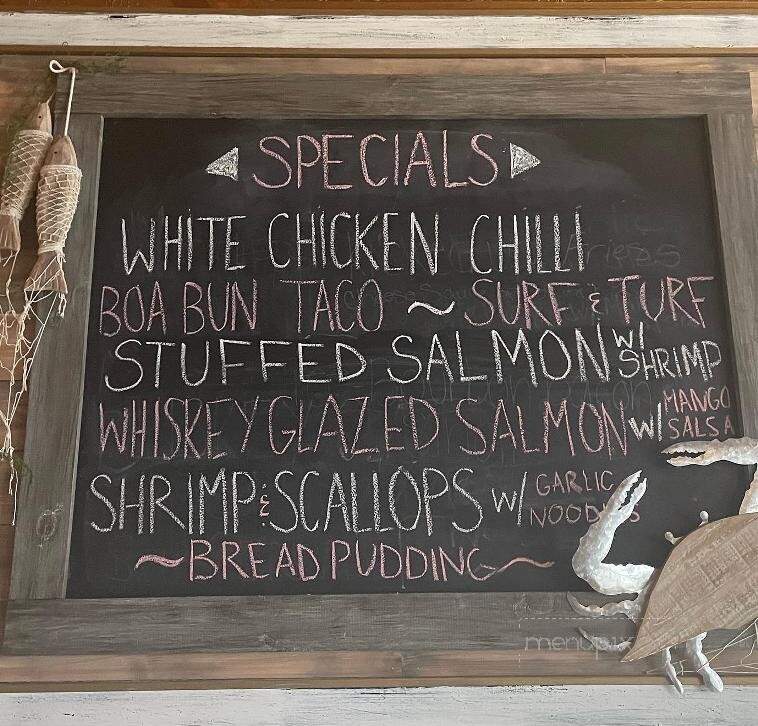 SPECIALS
WHITE CHICKEN CHILLI
BOA BUN TACO ~ SURF & TURF
STUFFED SALMON W/ SHRIMP
WHISKEY GLAZED SALMON W/ MANGO SALSA
SHRIMP & SCALLOPS W/ GARLIC NOODLES
~BREAD PUDDING~